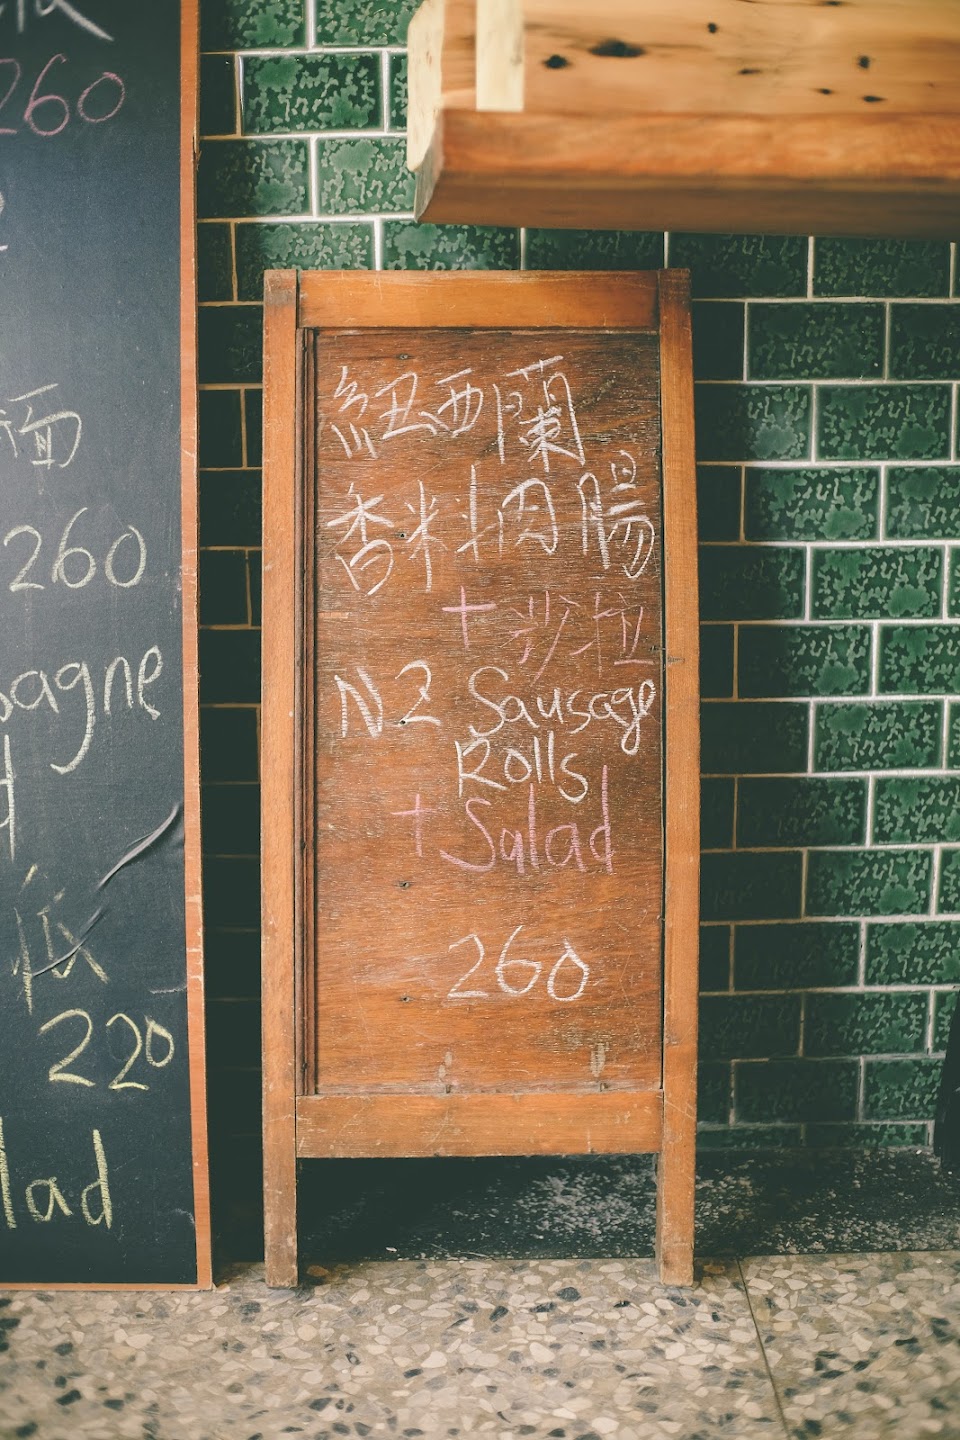 260
麵
260
sagne
220
lad
紐西蘭
香料肉腸
+沙拉
NZ Sausage
Rolls
+ Salad
260